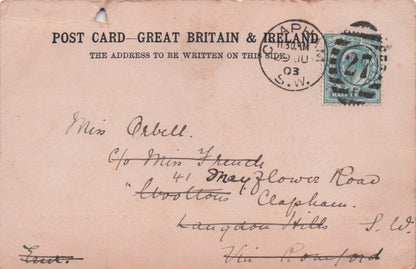 POST CARD—GREAT BRITAIN & IRELAND
THE ADDRESS TO BE WRITTEN ON THIS SIDE
CLAPHAM
11.30AM
JU
03
S.W.
27
HALF
Miss Orbell.
c/o Miss French
41 Mayflower Road
"Woottons Clapham.
Langdon Hills S.W.
Via Romford